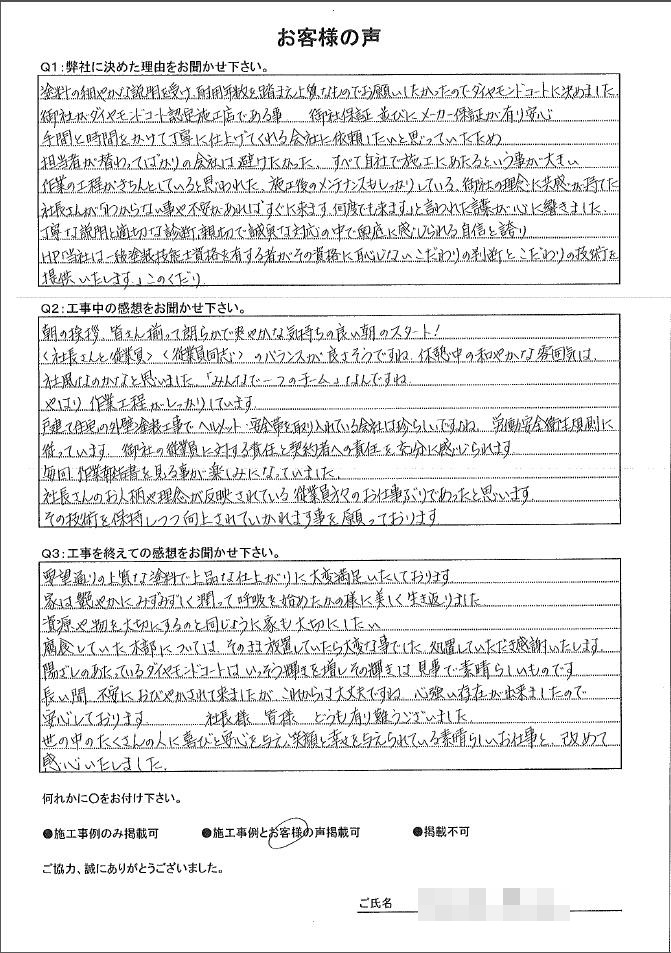 お客様の声
Q1:弊社に決めた理由をお聞かせ下さい。
塗料の細やかな説明を受け、耐用年数を踏まえ上質なものでお願いしたかったのでダイヤモンドコートに決めました。
御社がダイヤモンドコート認定施工店である事 御社保証並びにメーカー保証が有り安心
手間と時間をかけて丁寧に仕上げてくれる会社に依頼したいと思っていたため
担当者が替わってばかりの会社は避けたかった、すべて自社で施工にあたるという事が大きい
作業の工程がきちんとしていると思われた、施工後のメンテナンスもしっかりしている、御社の理念に共感が持てた
社長さんが「わからない事や不安があればすぐに来ます、何度でも来ます」と言われた言葉が心に響きました。
丁寧な説明と適切な診断、親切で誠実な対応の中で面底に感じられる自信と誇り
HP「当社は一級塗装技能士資格を有する者がその資格に恥じないこだわりの判断とこだわりの技術を
提供いたします。」このくだり
Q2:工事中の感想をお聞かせ下さい。
朝の挨拶 皆さん揃って朗らかで爽やかな気持ちの良い朝のスタート!
〈社長さんと従業員〉〈従業員同志〉のバランスが良さそうですね 休憩中の和やかな雰囲気は、
社風なのかなと思いました。「みんなで一つのチーム」なんですね
やはり作業工程がしっかりしています
戸建て住宅の外壁塗装工事でヘルメット・安全帯を取り入れている会社は珍らしいですよね 労働安全衛生規則に
従っています 御社の従業員に対する責任と契約者への責任を充分に感じられます
毎回作業報告書を見る事が楽しみになっていました
社長さんのお人柄や理念が反映されている従業員方々のお仕事ぶりであったと思います
その技術を保持しつつ向上されていかれます事を願っております
Q3:工事を終えての感想をお聞かせ下さい。
要望通りの上質な塗料で上品な仕上がりに大変満足いたしております
家は艶やかにみずみずしく潤って呼吸を始めたかの様に美しく生き返りました
資源や物を大切にするのと同じように家も大切にしたい
腐食していた木部については、そのまま放置していたら大変な事でした、処置していただき感謝いたします。
陽ざしのあたっているダイヤモンドコートはいっそう輝きを増しその輝きは見事で素晴らしいものです
長い間、不安におびやかされて来ましたが、これからは大丈夫ですね 心強い存在が出来ましたので
安心しております 社長様 皆様 どうも有り難うございました
世の中のたくさんの人に喜びと安心を与え、笑顔と幸せを与えられている素晴らしいお仕事と、改めて
感心いたしました。
何れかに〇をお付け下さい。
●施工事例のみ掲載可 ●施工事例とお客様の声掲載可 ●掲載不可
ご協力、誠にありがとうございました。
ご氏名